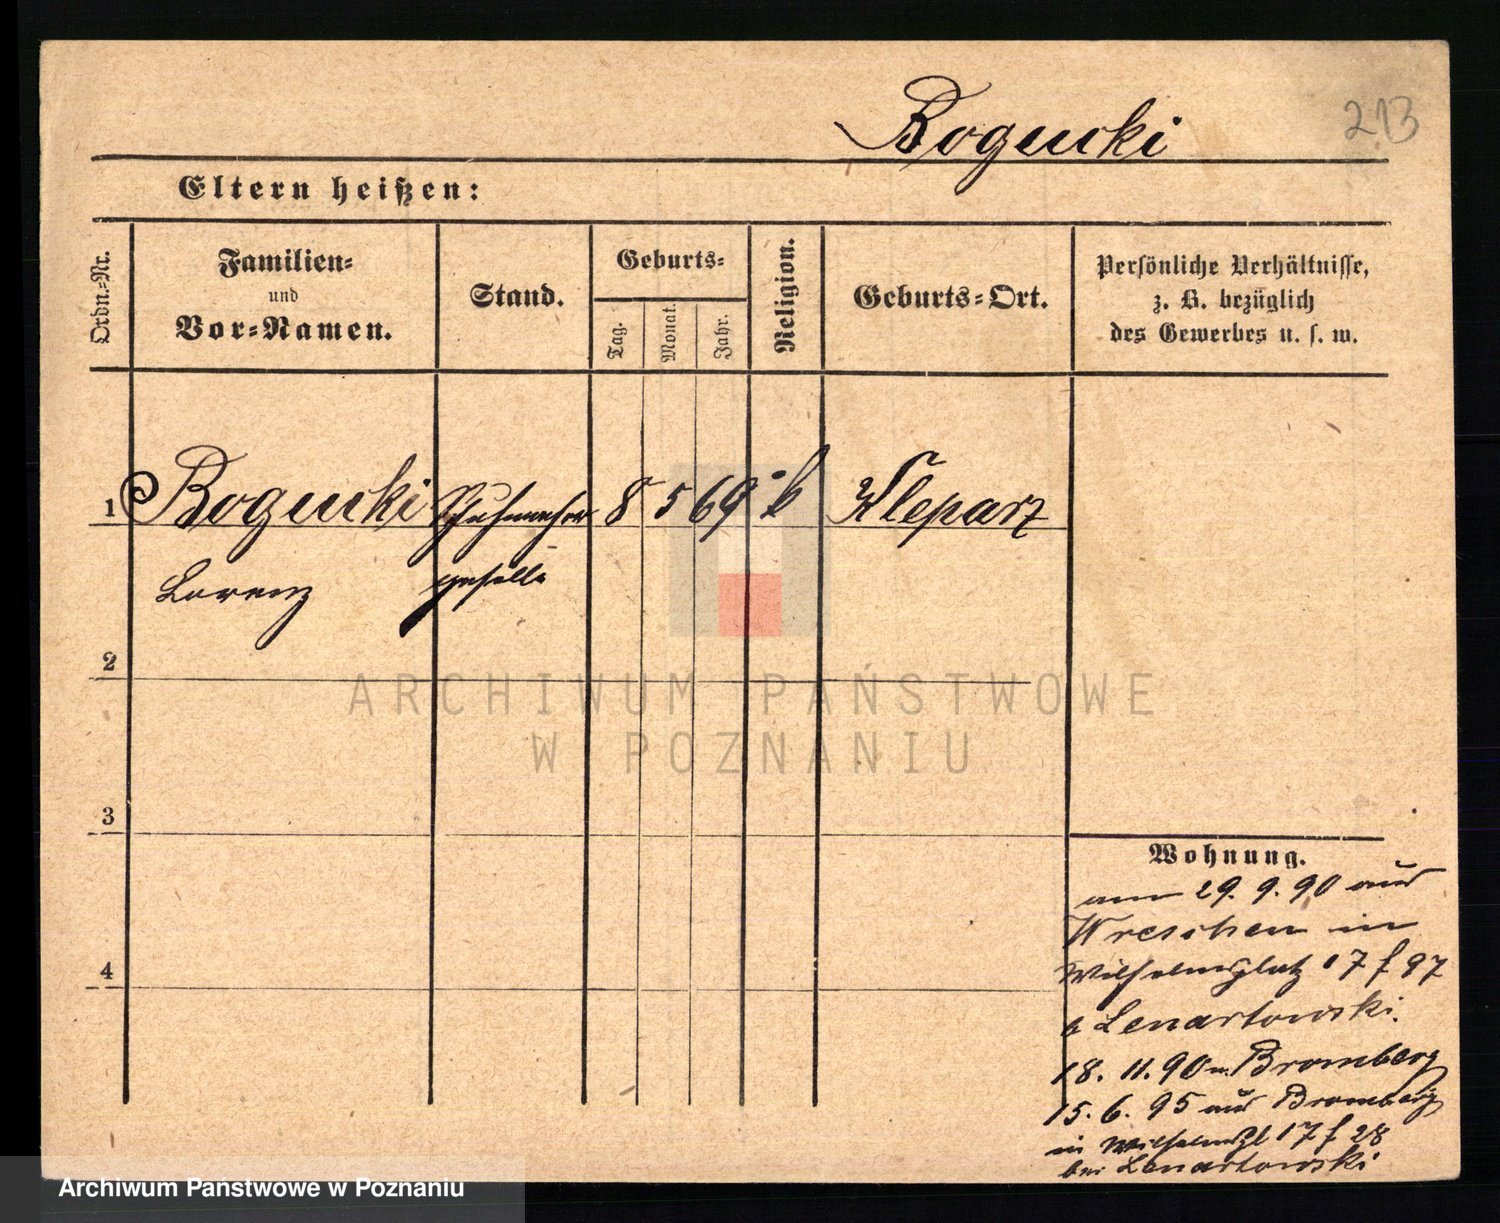 Bogucki
213
Eltern heißen:
Ordn.-Nr.
Familien-
und
Vor-Namen.
Stand.
Geburts-
Tag.
Monat.
Jahr.
Religion.
Geburts-Ort.
Persönliche Verhältnisse,
z. B. bezüglich
des Gewerbes u. s. w.
1 Bogucki Schuhmacher 8 5 69 k Kleparz
Lorenz geselle
2
3
4
ARCHIWUM PAŃSTWOWE
W POZNANIU
Wohnung.
am 29. 9. 90 aus
Wreschen in
Wilhelmsplatz 17 f 97
b Lenartowski.
18. 11. 90 n. Bromberg
15. 6. 95 aus Bromberg
in Wilhelmspl 17 f 28
bei Lenartowski
Archiwum Państwowe w Poznaniu